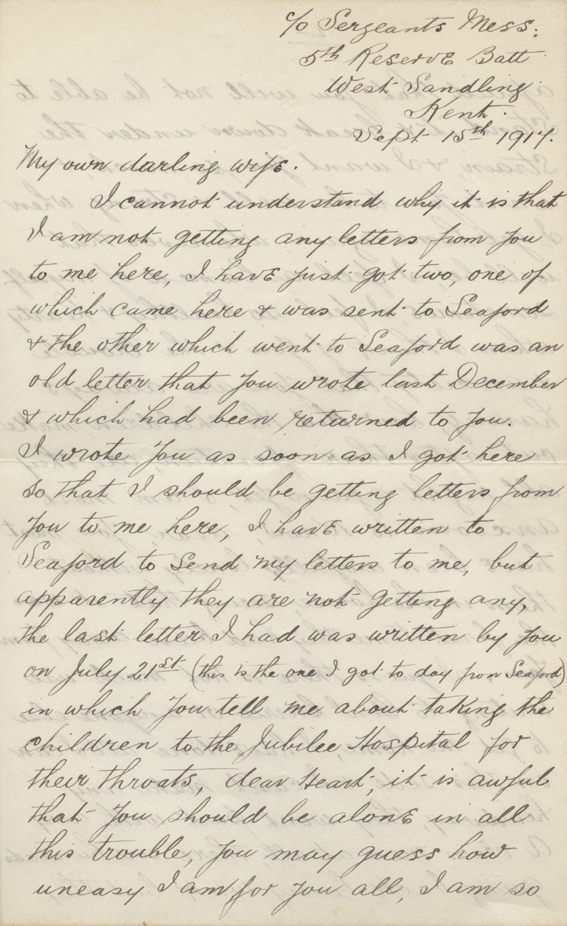 c/o Sergeants Mess.
5th Reserve Batt
West Sandling
Kent.
Sept 15th 1917.
My own darling wife.
I cannot understand why it is that
I am not getting any letters from you
to me here, I have just got two, one of
which came here & was sent to Seaford
& the other which went to Seaford was an
old letter that you wrote last December
& which had been returned to you.
I wrote you as soon as I got here
so that I should be getting letters from
you to me here, I have written to
Seaford to send my letters to me, but
apparently they are not getting any,
the last letter I had was written by you
on July 21st (this is the one I got to day from Seaford)
in which you tell me about taking the
children to the Jubilee Hospital for
their throats, dear heart, it is awful
that you should be alone in all
this trouble, you may guess how
uneasy I am for you all, I am so